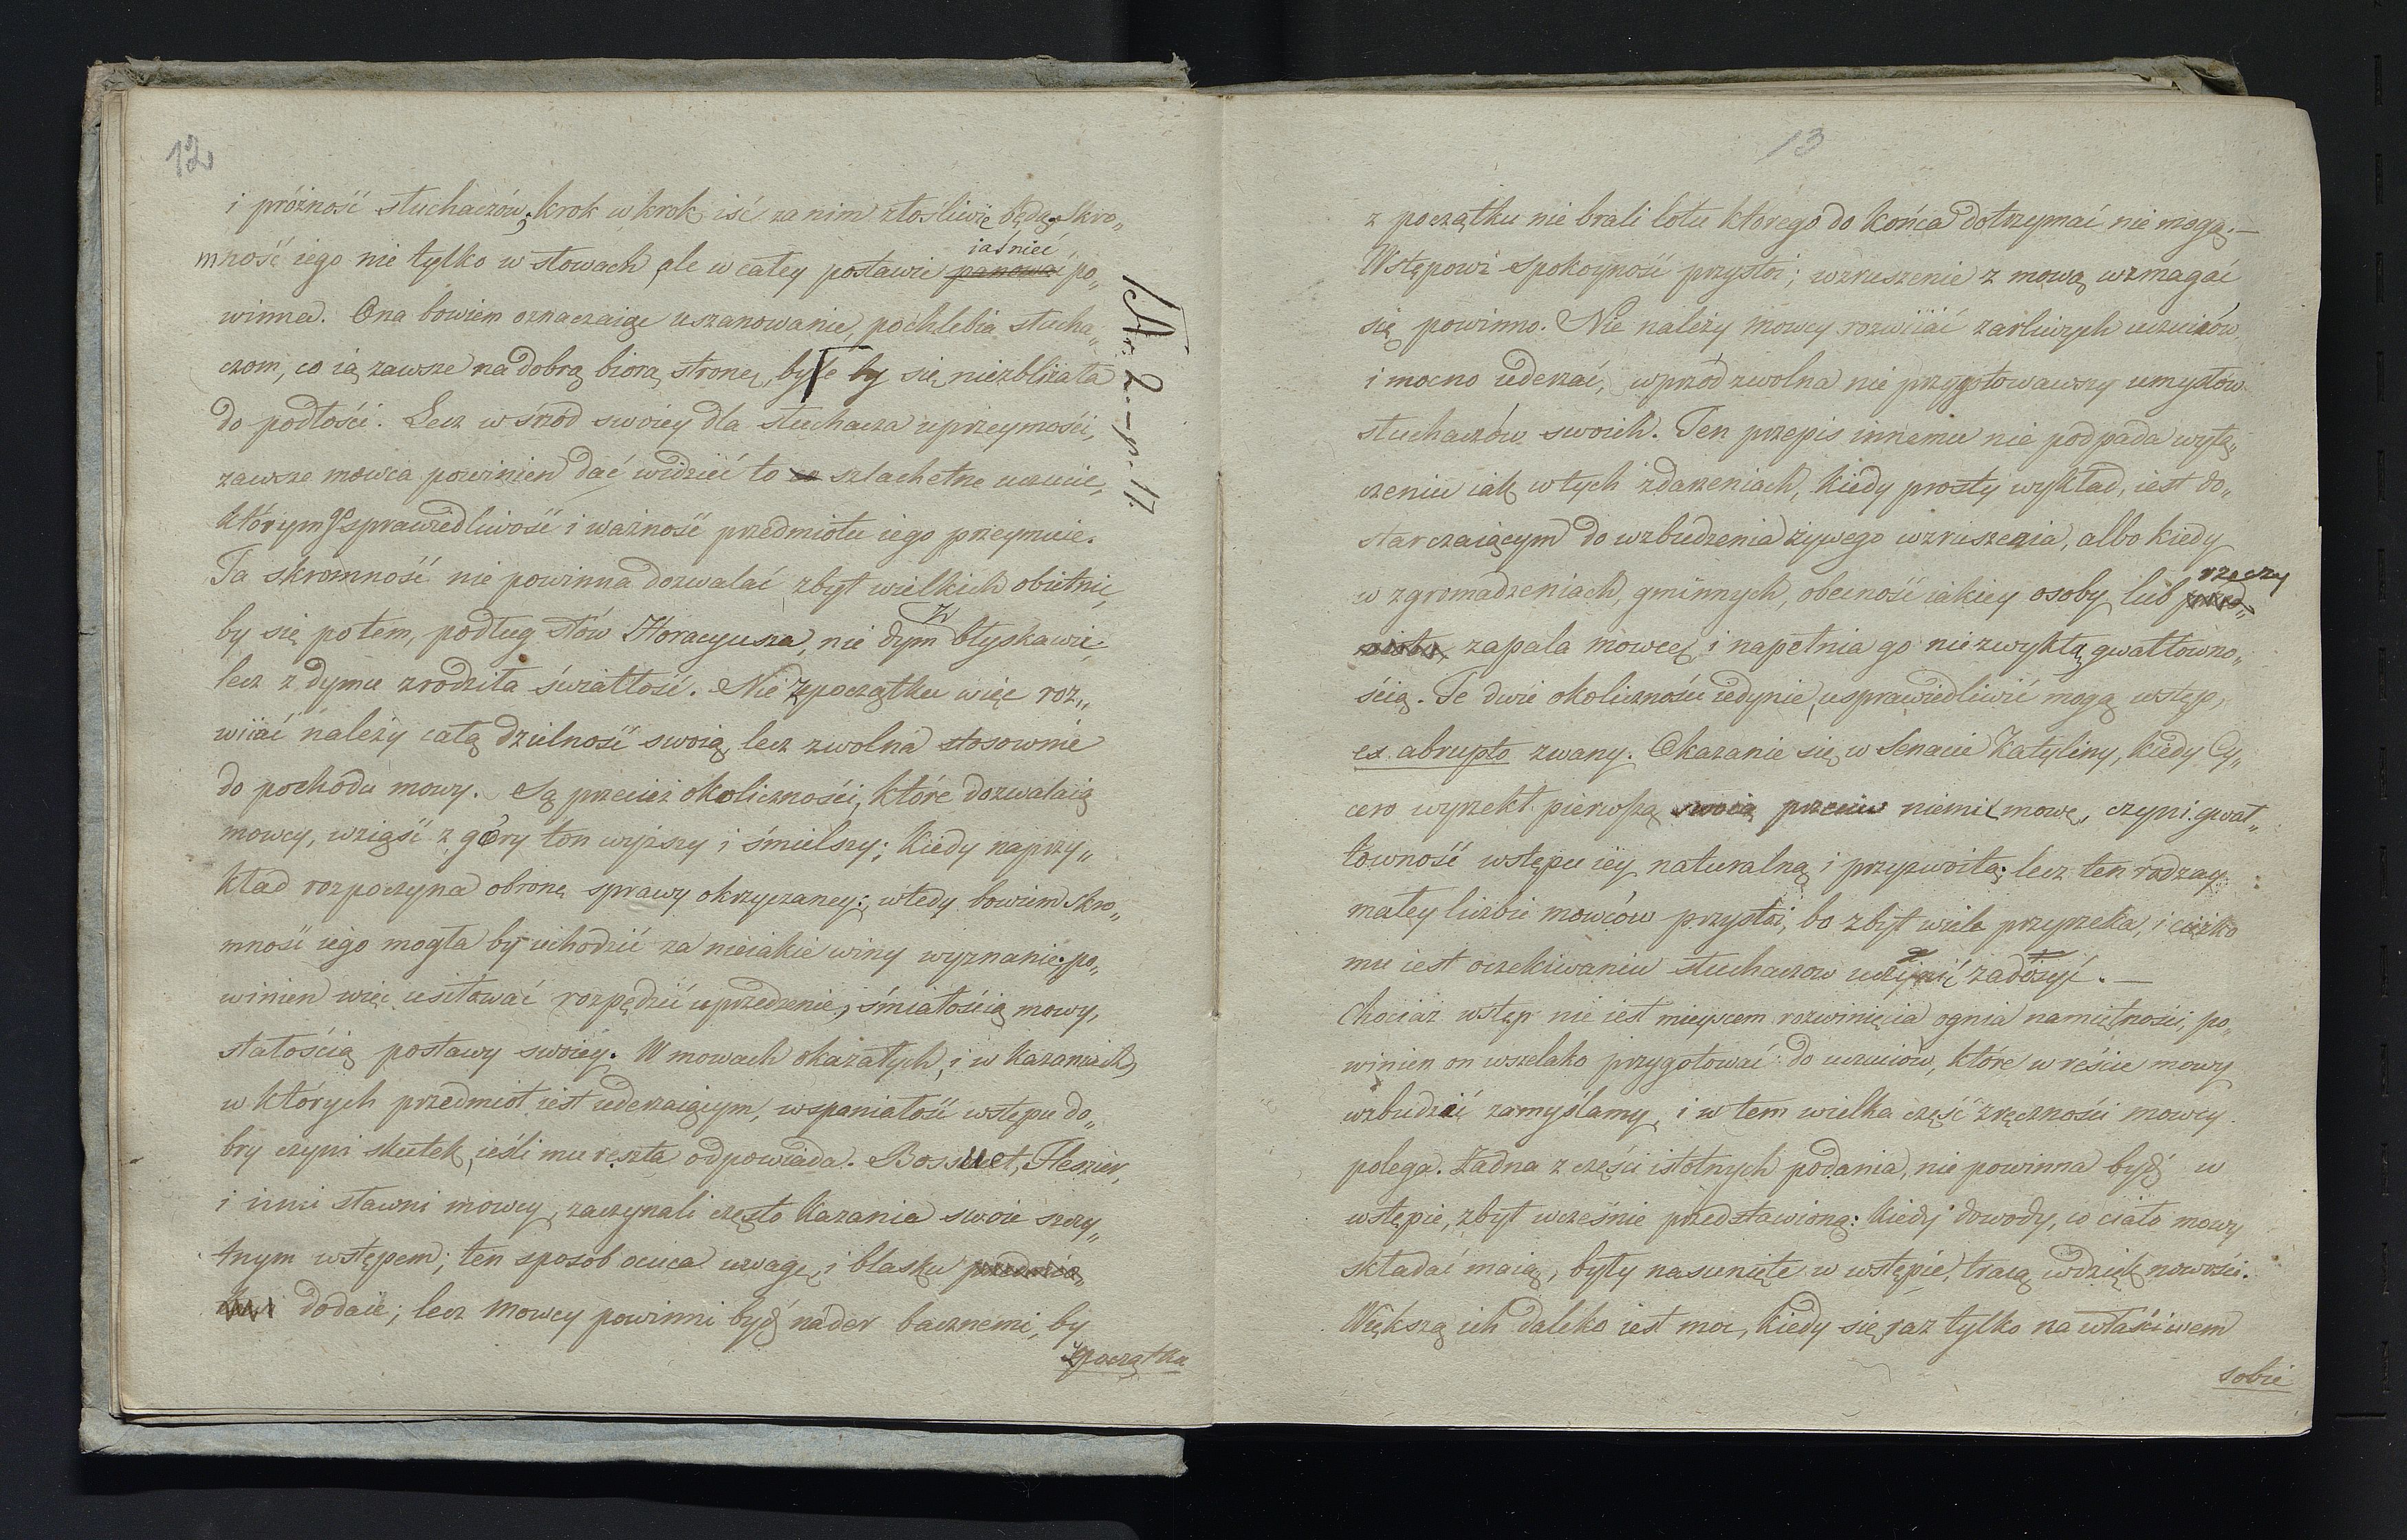 12
i próżność słuchaczów; krok w krok iść za nim złośliwie będą. Skro„
mność iego nie tylko w słowach, ale w całey postawie iaśnieć po„
winna. Ona bowiem oznaczaiąc uszanowanie, pochlebia słucha„
czom, co ią zawsze na dobrą biorą stronę, byle by się niezbliżała
do podłości. Lecz wśród swoiey dla słuchacza uprzeymości,
zawsze mowca powinien dać widzieć to szlachetne uczucie,
którym go sprawiedliwość i ważność przedmiotu iego przeymuie.
Ta skromność nie powinna dozwalać zbyt wielkich obietnic,
by się potem, podług słów Horacyusza, nie dym z błyskawic
lecz z dymu zrodziła światłość. Nie z początku więc roz„
wiiać należy całą dzielność swoią, lecz zwolna stosownie
do pochodu mowy. Są przecież okoliczności, które dozwalaią
mowcy, wziąść z góry ton wyższy i śmielszy; kiedy naprzy„
kład rozpoczyna obronę sprawy okrzyczaney; wtedy bowiem skro„
mność iego mogła by uchodzić za nieiakie winy wyznanie; po„
winien więc usiłować rozpędzić uprzedzenie, śmiałością mowy,
stałością postawy swoiey. W mowach okazałych, i w kazaniach,
w których przedmiot iest uderzaiącym, wspaniałość wstępu do„
bry czyni skutek, ieśli mu reszta odpowiada. Bossuet, Fleszier,
i inni sławni mowcy, zaczynali często kazania swoie szczy„
tnym wstępem; ten sposób ocuca uwagę, i blasku
dodaie; lecz mowcy powinni bydź nader bacznemi, by
zpoczątku
Ar. 2. - p. 17.
13
z początku nie brali lotu którego do końca dotrzymać nie mogą. —
Wstępowi spokoyność przystoi; wzruszenie z mową wzmagać
się powinno. Nie należy mowcy rozwiiać żarliwych uczuciów,
i mocno uderzać, wprzód zwolna nie przygotowawszy umysłów
słuchaczów swoich. Ten przepis innemu nie podpada wyłą„
czeniu iak w tych zdarzeniach, kiedy prosty wykład, iest do„
starczaiącym do wzbudzenia żywego wzruszenia, albo kiedy
w zgromadzeniach, gminnych, obecność iakiey osoby lub rzeczy
zapala mowcę, i napełnia go niezwykłą gwałtowno„
ścią. Te dwie okoliczności iedynie, usprawiedliwić mogą wstęp,
ex abrupto zwany. Okazanie się w Senacie Katyliny, kiedy Cy„
cero wyrzekł pierwszą swoią przeciw niemu mowę, czyni gwał„
towność wstępu iey naturalną i przyzwoitą; lecz ten rodzay
małey liczbie mowców przystoi, bo zbyt wiele przyrzeka, i ciężko
mu iest oczekiwaniu słuchaczow uczynić zadosyć. —
Chociaż wstęp nie iest mieyscem rozwinięcia ognia namiętności, po„
winien on wszelako przygotować do uczuciów, które w reście mowy
wzbudzić zamyślamy, i w tem wielka część zręczności mowcy
polega. Żadna z części istotnych podania, nie powinna bydź w
wstępie, zbyt wcześnie przedstawioną: kiedy dowody, co ciało mowy
składać maią, były nasunięte w wstępie, tracą wdzięk nowości.
Większą ich daleko iest moc, kiedy się raz tylko na właściwem
sobie